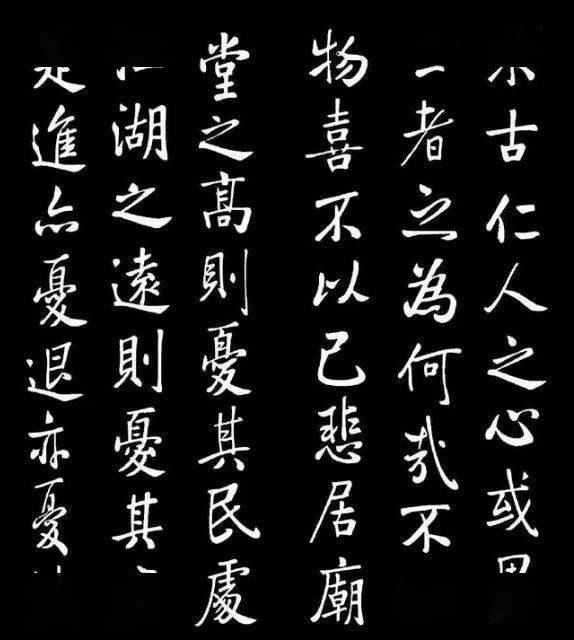 古仁人之心或
者之為何哉不
物喜不以己悲居廟
堂之高則憂其民處
湖之遠則憂其
進亦憂退亦憂